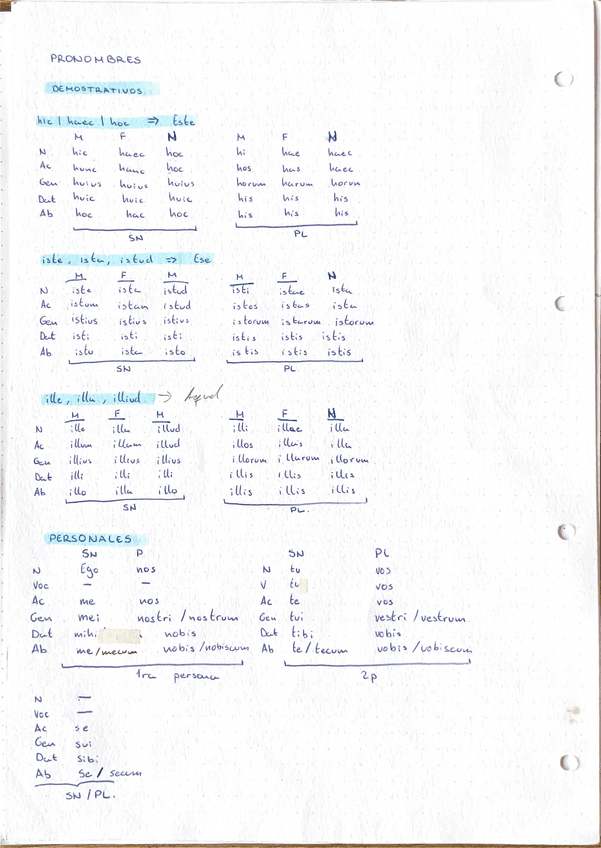 PRONOMBRES
DEMOSTRATIVOS
hic / haec / hoc => Este
M F N M F N
N hic haec hoc hi hae haec
Ac hunc hanc hoc hos has haec
Gen huius huius huius horum harum horum
Dat huic huic huic his his his
Ab hoc hac hoc his his his
SN PL
iste, ista, istud => Ese
M F M M F N
N iste ista istud isti istae ista
Ac istum istam istud istos istas ista
Gen istius istius istius istorum istarum istorum
Dat isti isti isti istis istis istis
Ab isto ista isto istis istis istis
SN PL
ille, illa, illud -> Aquel
M F M M F N
N ille illa illud illi illae illa
Ac illum illam illud illos illas illa
Gen illius illius illius illorum illarum illorum
Dat illi illi illi illis illis illis
Ab illo illa illo illis illis illis
SN PL.
PERSONALES
SN P SN PL
N Ego nos N tu vos
Voc — — V tu vos
Ac me nos Ac te vos
Gen mei nostri / nostrum Gen tui vestri / vestrum
Dat mihi nobis Dat tibi vobis
Ab me / mecum nobis / nobiscum Ab te / tecum vobis / vobiscum
1ra persona 2p
N —
Voc —
Ac se
Gen sui
Dat sibi
Ab se / secum
SN / PL.